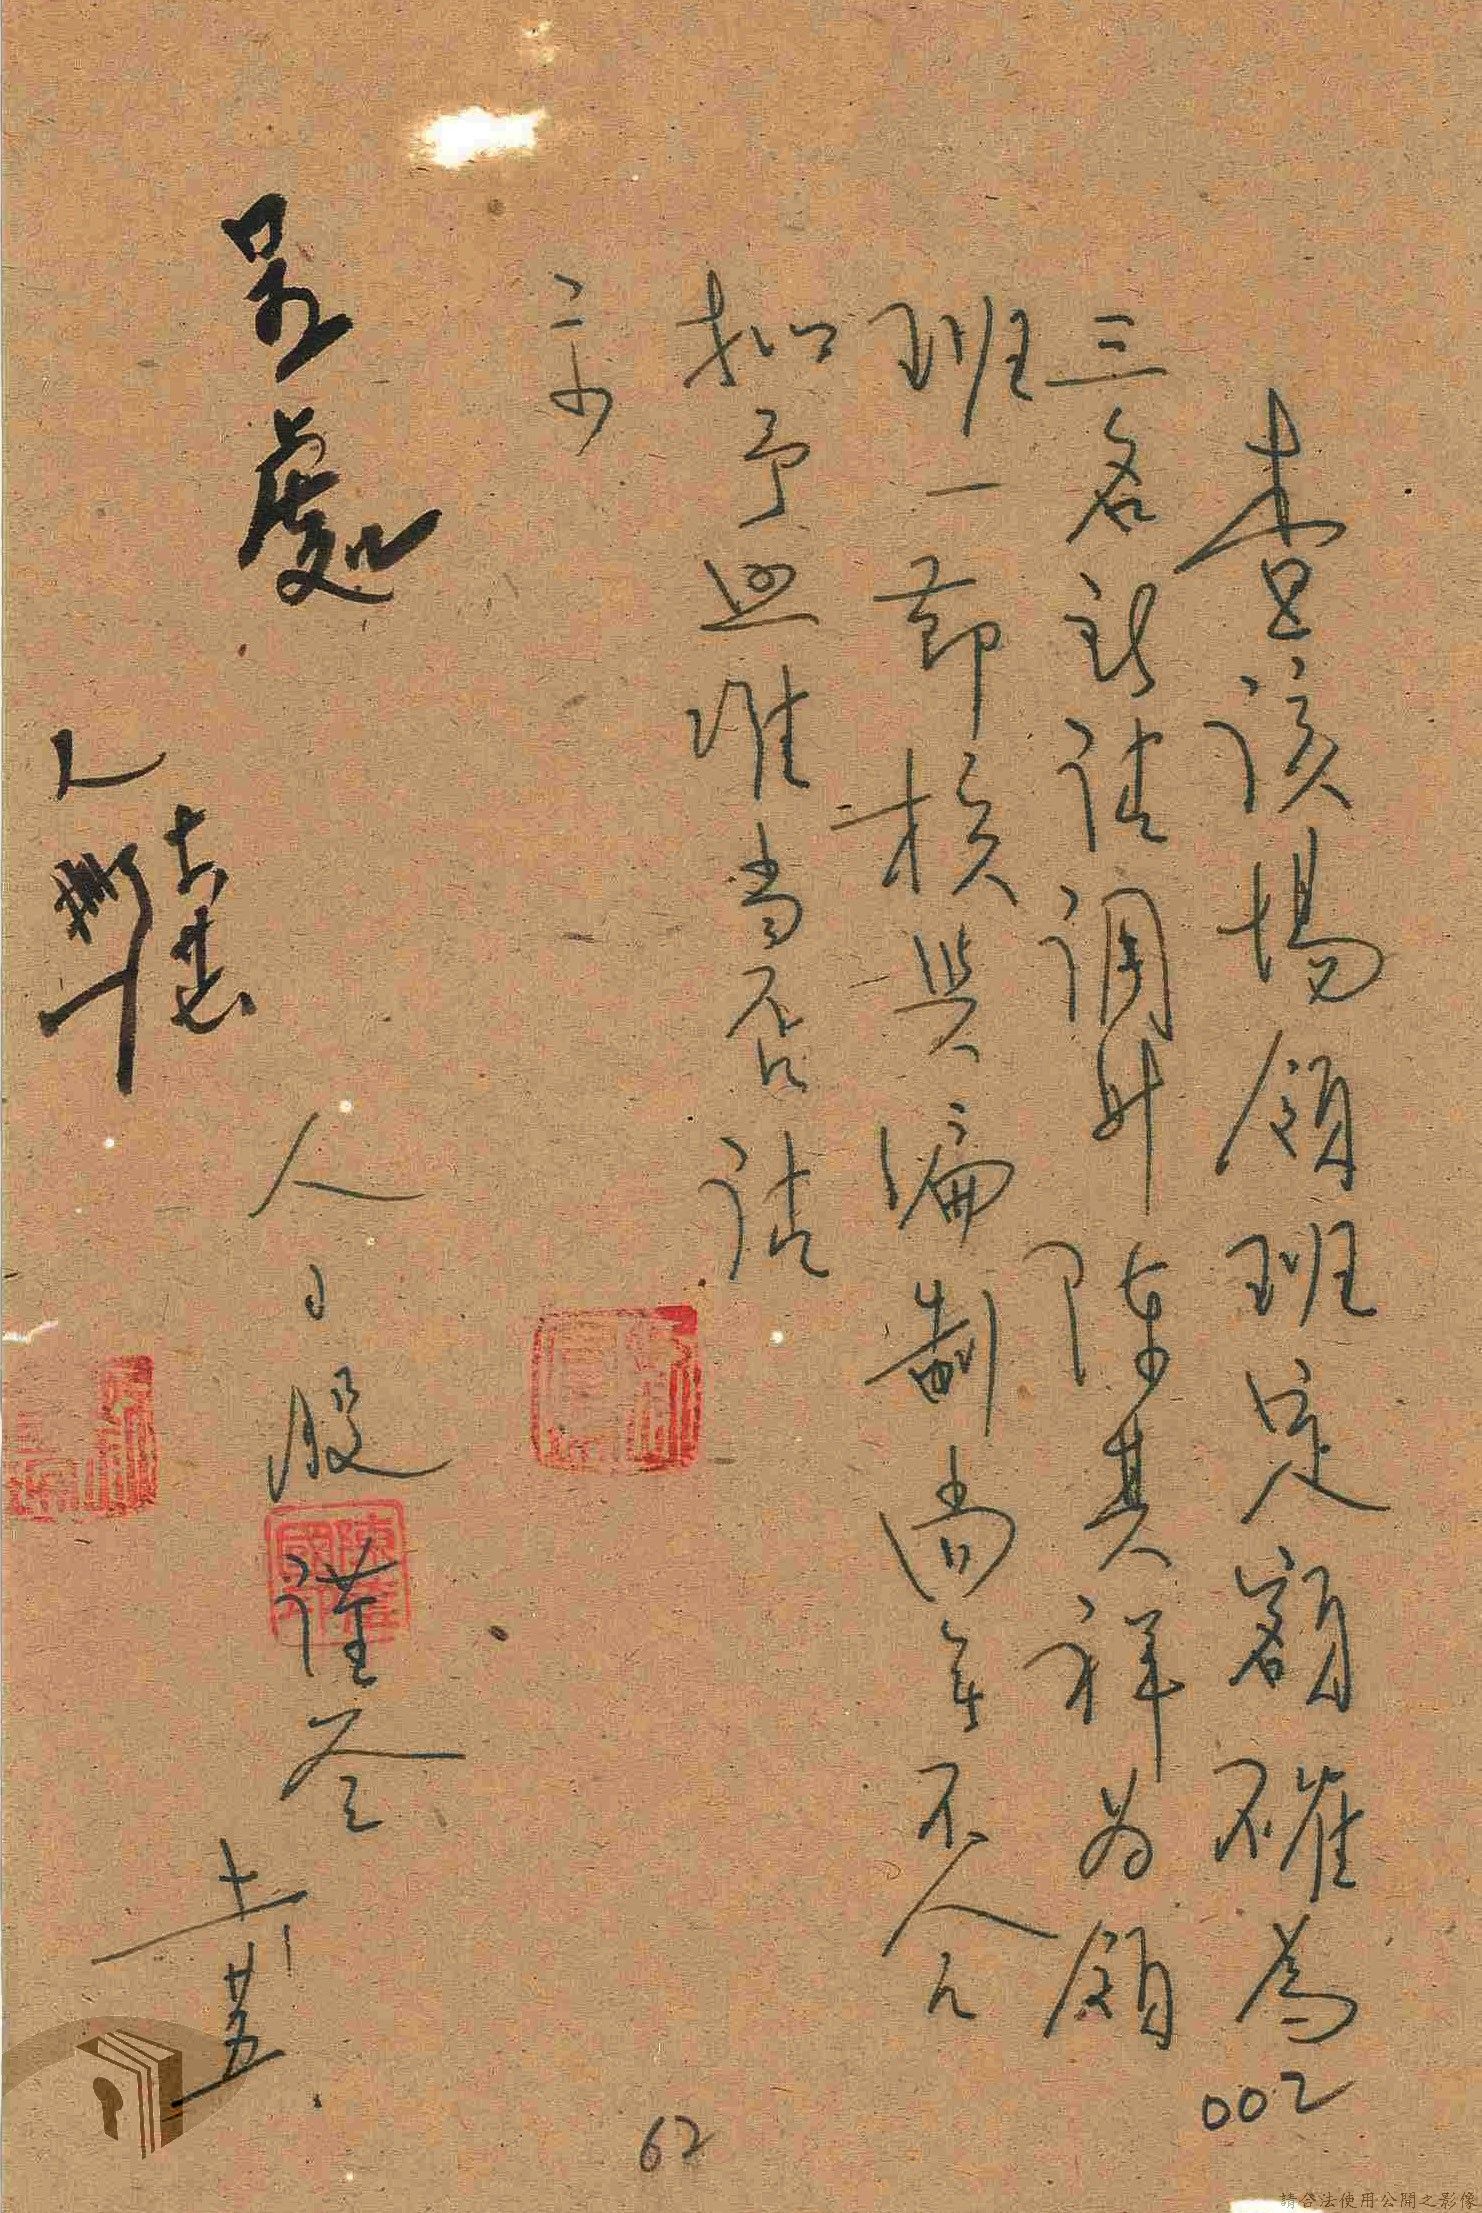 查該場領班定額確為
三名所請調升陳其祥為領
班一節核與編制尚無不合
擬予照准當否請
示
人事股謹簽
十一 廿五
呈處
002
62
請合法使用公開之影像